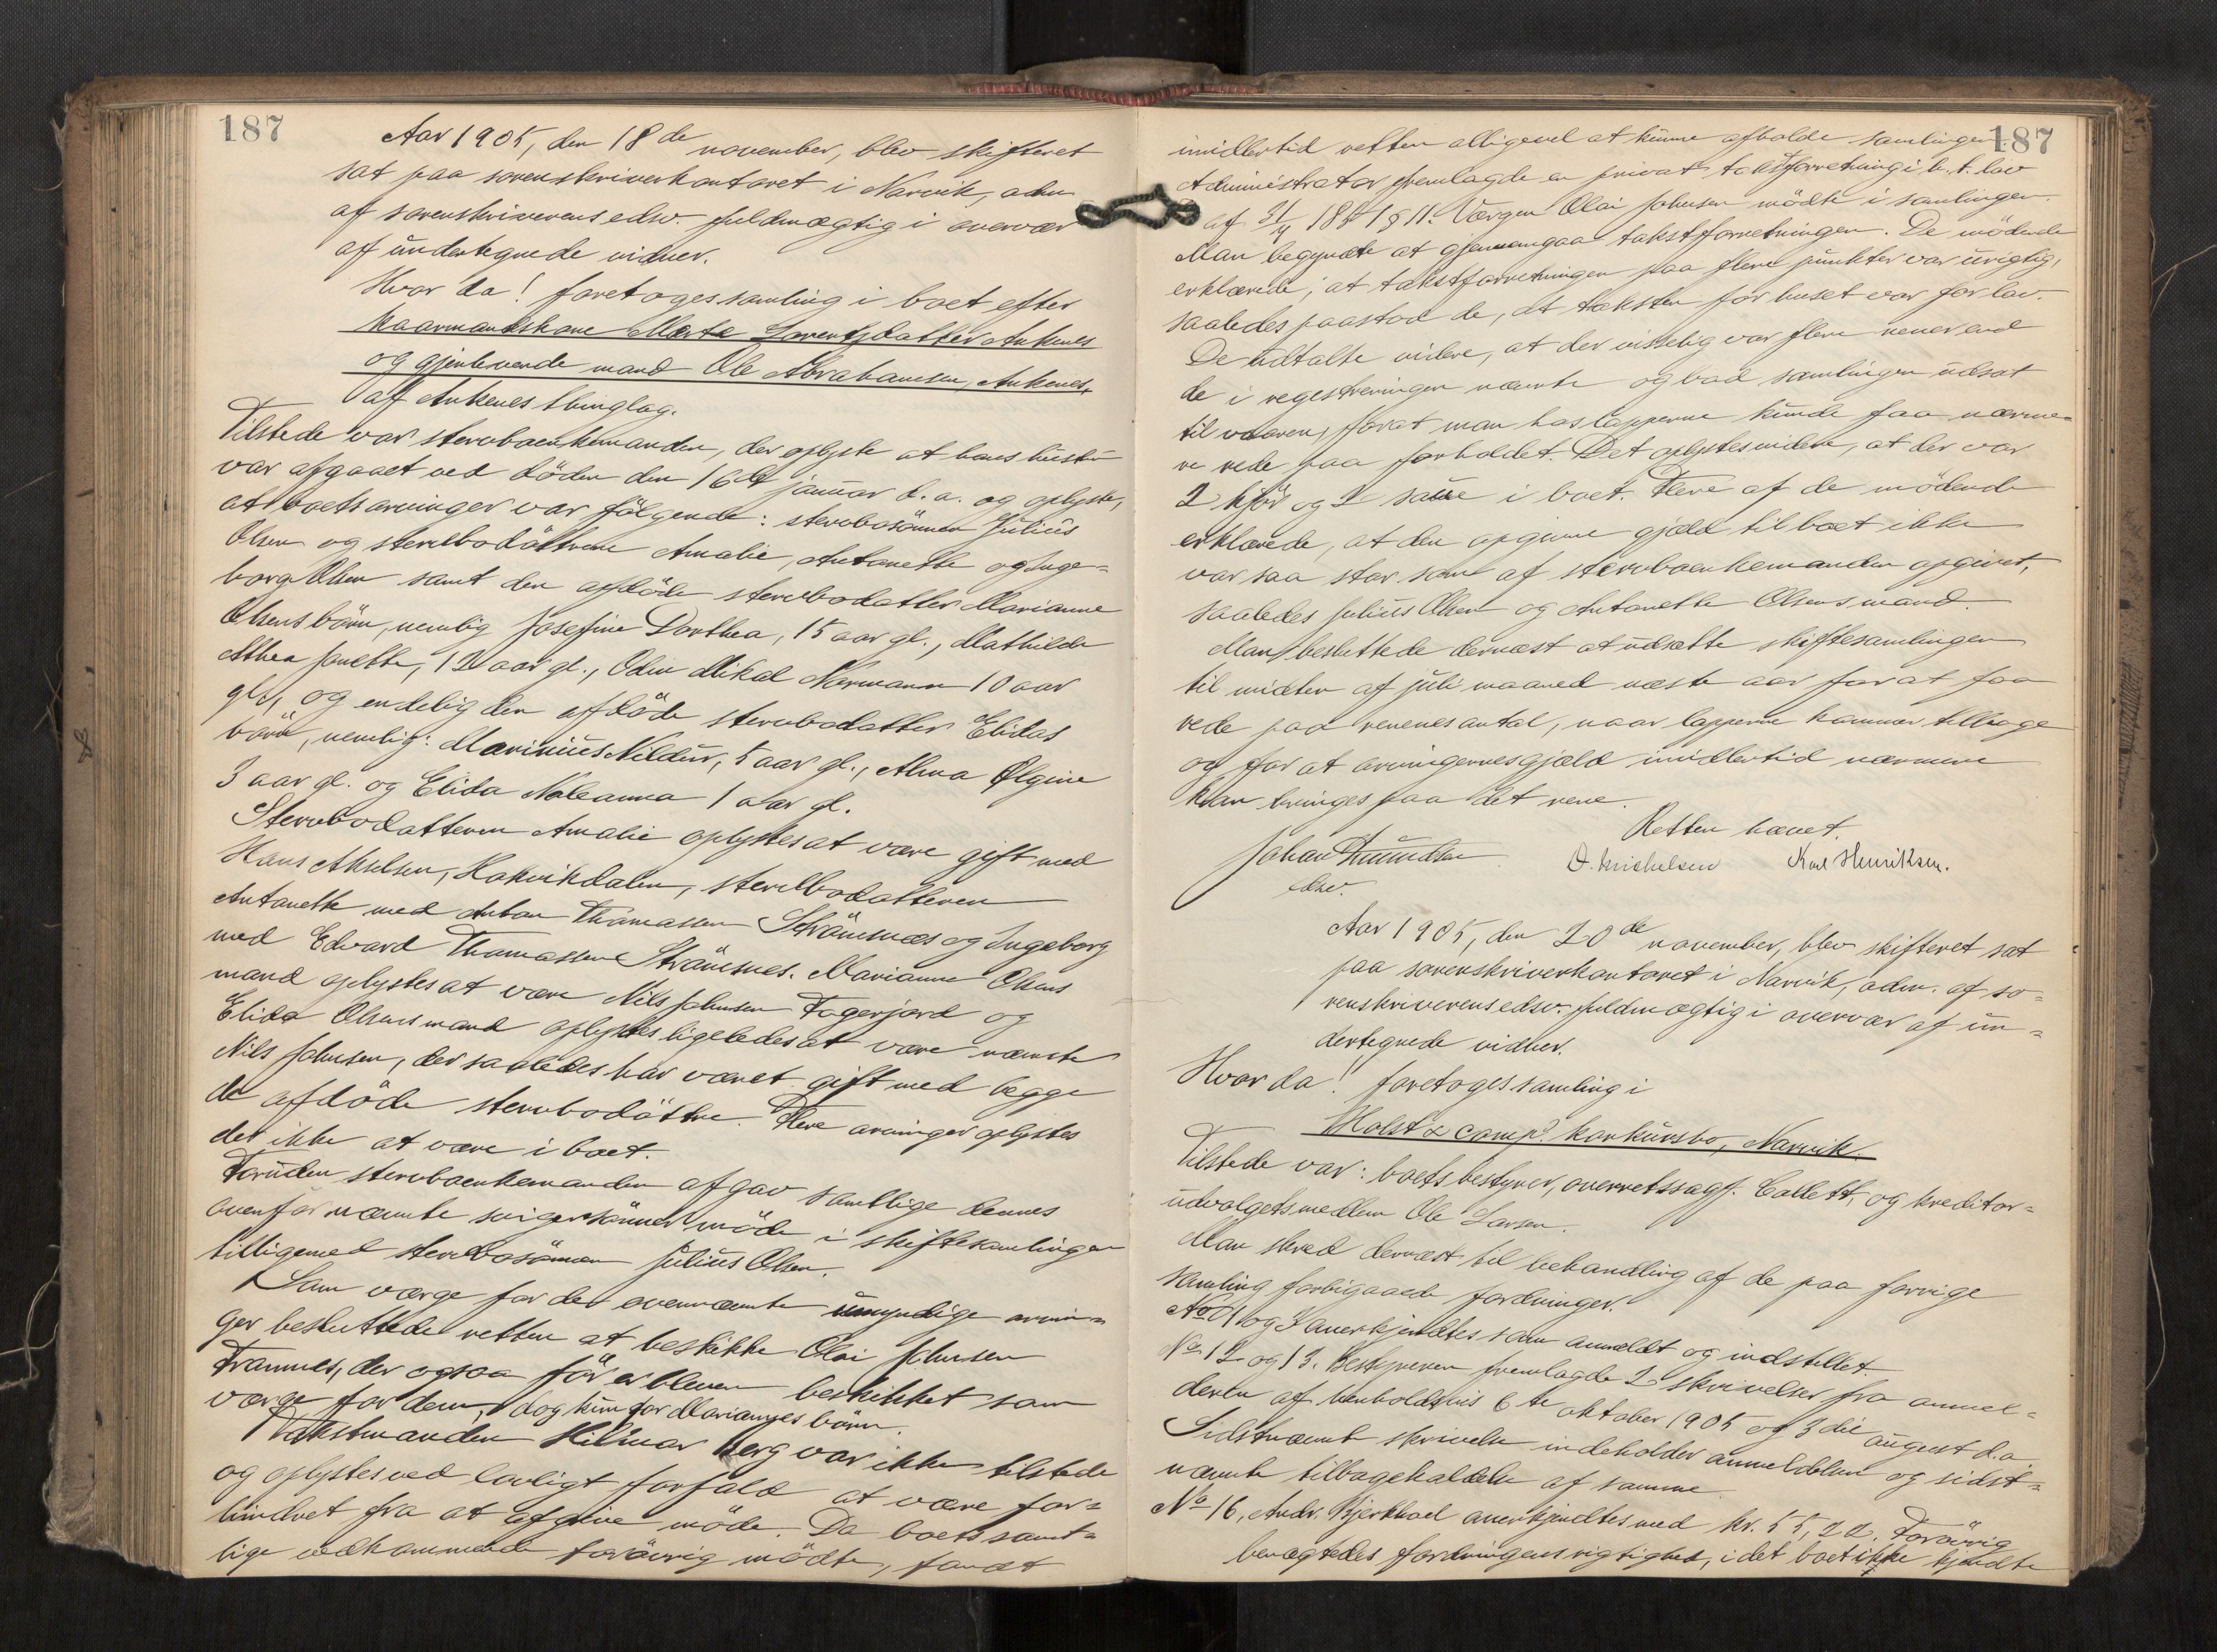 187
Aar 1905, den 18de november, blev skifteret
sat paa sorenskriverkontoret i Narvik, adm.
af sorenskriverens edsv. fuldmægtig i overvær
af undertegnede vidner.
Hvor da! foretoges samling i boet efter
kaarmandskone Marta Lorentsdatter Ankenes
og gjenlevende mand Ole Abrahamsen, Ankenes,
af Ankenes thinglag.
Tilstede var stervboenkemanden, der oplyste at hans hustru
var afgaaet ved döden den 16de januar d. a. og oplyste,
at boets arvinger var fölgende: stervbosönnen Julius
Olsen og stervbodöttrene Amalie, Antonette og Inge-
borg Olsen samt den afdöde stervbodatter Marianne
Olsens börn, nemlig Josefine Dorthea, 15 aar gl., Mathilde
Althea Janette, 12 aar gl., Odin Mikal Normann 10 aar
gl., og endelig den afdöde stervbodatter Elidas
börn, nemlig: Marinius Nildur, 5 aar gl., Alma Olgine
3 aar gl. og Elida Noleanna 1 aar gl.
Stervbodatteren Amalie oplystes at være gift med
Hans Akselsen, Hakvikdalen, stervbodatteren
Antonette med Anton Thomassen Straumsnes og Ingeborg
med Edvard Thomassen Straumsnes. Marianne Olsens
mand oplystes at være Nils Johnsen Fagerjord og
Elida Olsens mand oplystes ligeledes at være nævnte
Nils Johnsen, der saaledes har været gift med begge
de afdöde stervbodöttre. Flere arvinger oplystes
det ikke at være i boet.
Foruden stervboenkemanden afgav samtlige dennes
ovenfor nævnte svigersönner möde i skiftesamlingen
tilligemed stervbosönnen Julius Olsen.
Som værge for de ovennævnte umyndige arvin-
ger besluttede retten at beskikke Olai Johnsen
Framnes, der ogsaa för er bleven beskikket som
værge for dem, dog kun for Mariannes börn.
Takstmanden Hilmar Berg var ikke tilstede
og oplystes ved lovligt forfald at være for-
hindret fra at afgive möde. Da boets samt-
lige vedkommende forövrig mödte, fandt
187
imidlertid retten alligevel at kunne afholde samlingen.
Administrator fremlagde en privat takstforretning i h. t. lov
af 31/4 1851 § 11. Værgen Olai Johnsen mödte i samlingen.
Man begyndte at gjennemgaa takstforretningen. De mödende
erklærede, at takstforretningen paa flere punkter var urigtig,
saaledes paastod de, at taksten for huset var for lav.
De udtalte videre, at der visselig var flere rener end
de i registreringen nævnte og bad samlingen udsat
til vaaren, forat man hos lapperne kunde faa nærme-
re rede paa forholdet. Det oplystes videre, at der var
2 kjör og 2 saue i boet. Flere af de mödende
erklærede, at den opgivne gjæld til boet ikke
var saa stor som af stervboenkemanden opgivet,
saaledes Julius Olsen og Antonette Olsens mand.
Man besluttede dernæst at udsætte skiftesamlingen
til midten af juli maaned næste aar for at faa
rede paa renenes antal, naar lapperne kommer tilbage
og for at arvingernes gjæld imidlertid nærmere
kan bringes paa det rene.
Retten hævet.
Johan Knudsen O. Michelsen Karl Henriksen.
edsv.
Aar 1905, den 20de november, blev skifteret sat
paa sorenskriverkontoret i Narvik, adm. af so-
renskriverens edsv. fuldmægtig i overvær af un-
dertegnede vidner.
Hvor da! foretoges samling i
Holst & comp? konkursbo, Narvik.
Tilstede var: boets bestyrer, overretssagf. Collett, og kreditor-
udvalgets medlem Ole Larsen.
Man skred dernæst til behandling af de paa forrige
samling forbigaaede fordringer.
No 1 og 3 anerkjendtes som anmeldt og indstillet.
No 12 og 13. Bestyreren fremlagde 2 skrivelser fra anmel-
deren af henholdsvis 6te oktober 1905 og 3die august d.a.
Sidstnævnte skrivelse indeholder anmeldelsen og sidst-
nævnte tilbagekaldelse af samme.
No 16, Andr. Bjerkhoel anerkjendtes med kr. 55,22. Forövrig
benægtedes fordringens rigtighed, idet boet ikke kjendte